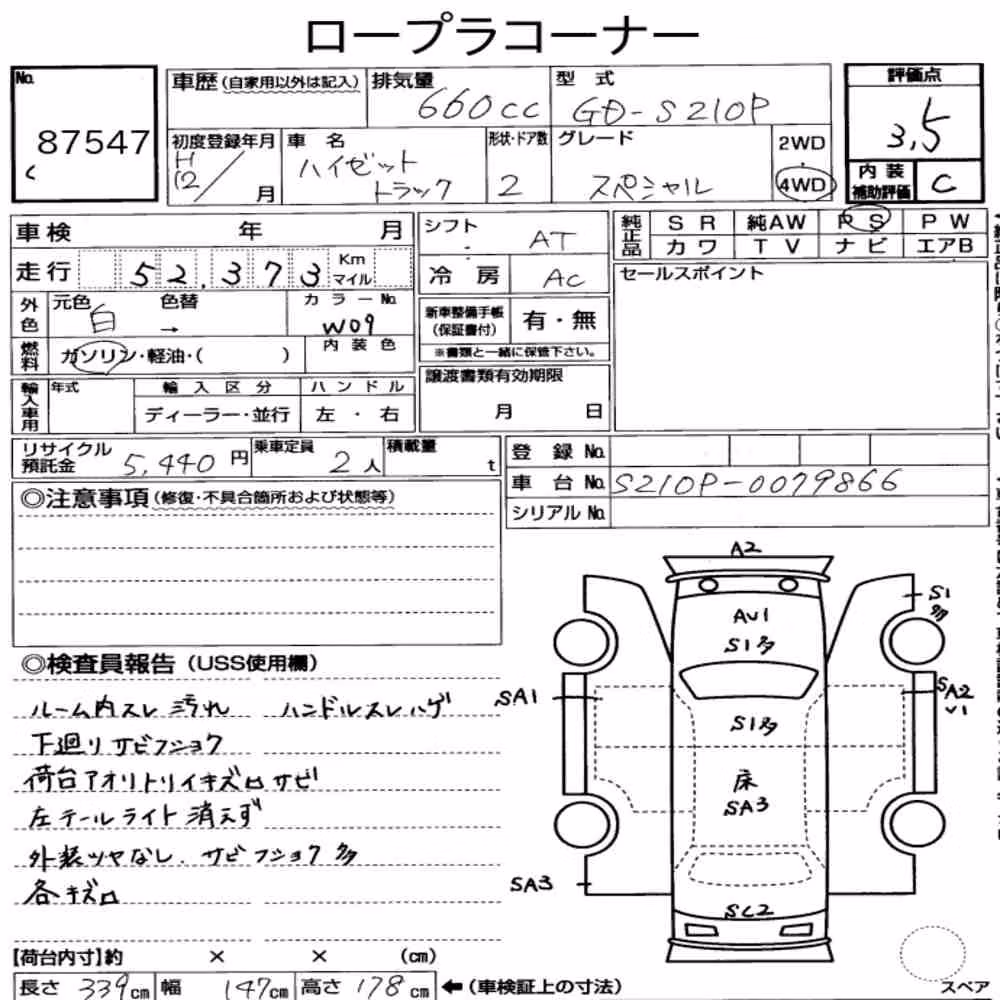 ロープラコーナー
No. 87547
車歴(自家用以外は記入)
排気量 660cc
型式 GD-S210P
評価点 3.5
初度登録年月 H12/ 月
車名 ハイゼット トラック
形状・ドア数 2
グレード スペシャル
2WD
4WD
内装補助評価 C
車検 年 月
走行 52,373 Km マイル
外色 元色 白 色替 → カラーNo. W09
燃料 ガソリン・軽油・( ) 内装色
輸入車用 年式 輸入区分 ハンドル
ディーラー・並行 左・右
シフト AT
冷房 AC
新車整備手帳(保証書付) 有・無
※書類と一緒に保管下さい。
譲渡書類有効期限
月 日
純正品 SR 純AW PS PW
カワ TV ナビ エアB
セールスポイント
リサイクル預託金 5,440円
乗車定員 2人
積載量 t
登録No.
車台No. S210P-0079866
シリアルNo.
◎注意事項(修復・不具合箇所および状態等)
◎検査員報告(USS使用欄)
ルーム内スレ汚れ ハンドルスレハゲ
下廻リサビフショク
荷台アオリトリイキズ凹サビ
左テールライト消えず
外装ツヤなし、サビフショク多
各キズ凹
A2
AU1
S1多
S1多
S1多
SA1
SA2
V1
床
SA3
SA3
SC2
【荷台内寸】約 × × (cm)
長さ 339cm 幅 147cm 高さ 178cm ←(車検証上の寸法)
スペア